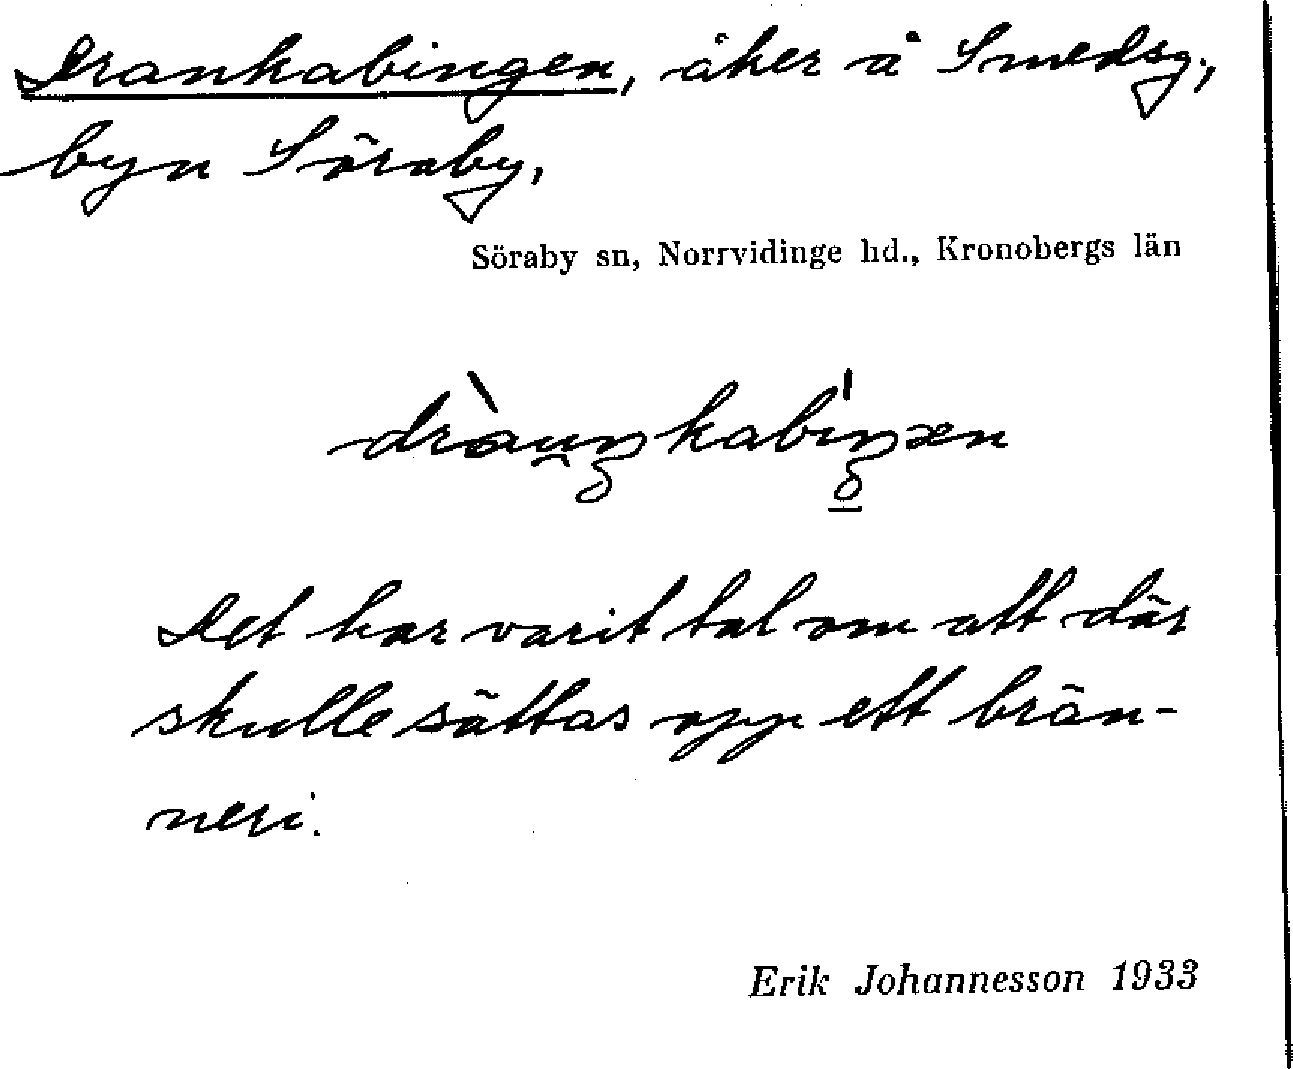 Drankabingen, åker å Smedsg.,
byn Söraby,
Söraby sn, Norrvidinge hd., Kronobergs län
Det har varit tal om att där
skulle sättas opp ett brän-
neri.
Erik Johannesson 1933